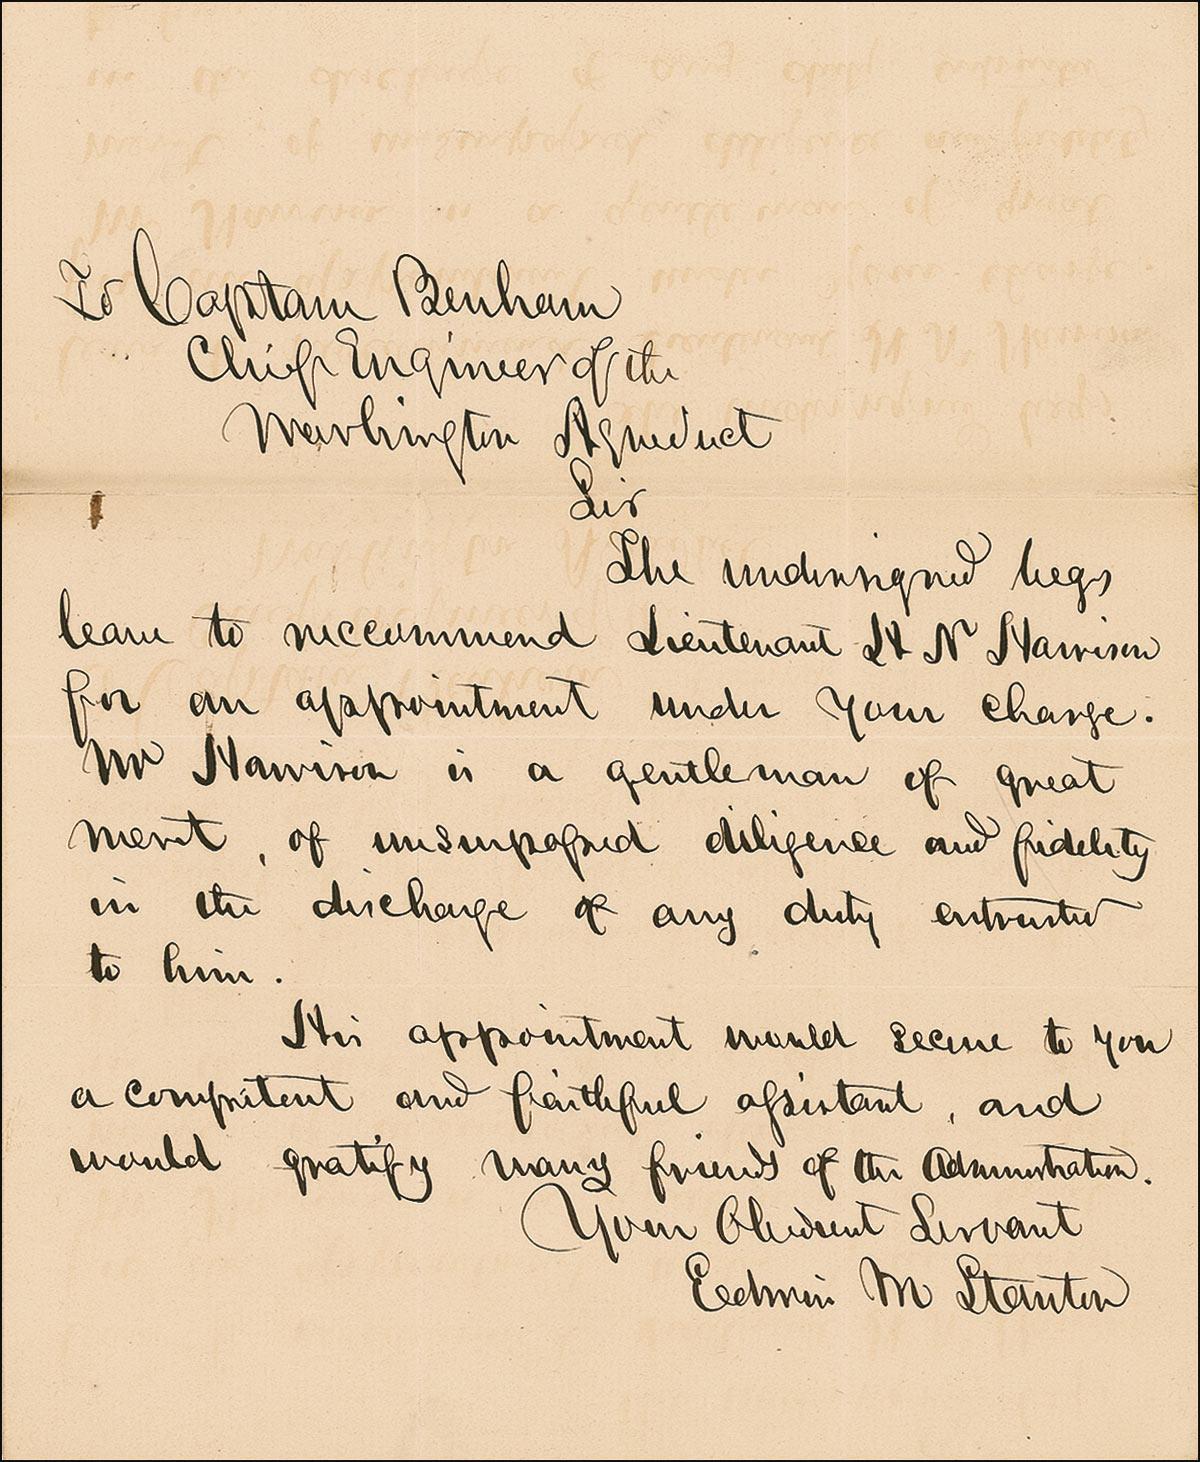 To Captain Benham
Chief Engineer of the
Washington Aqueduct
Sir
The undersigned begs
leave to reccommend Lieutenant H N Harrison
for an appointment under your charge.
Mr Harrison is a gentleman of great
merit, of unsurpassed diligence and fidelity
in the discharge of any duty entrusted
to him.
His appointment would secure to you
a competent and faithful assistant, and
would gratify many friends of the Administration.
Your Obedient Servant
Edwin M Stanton